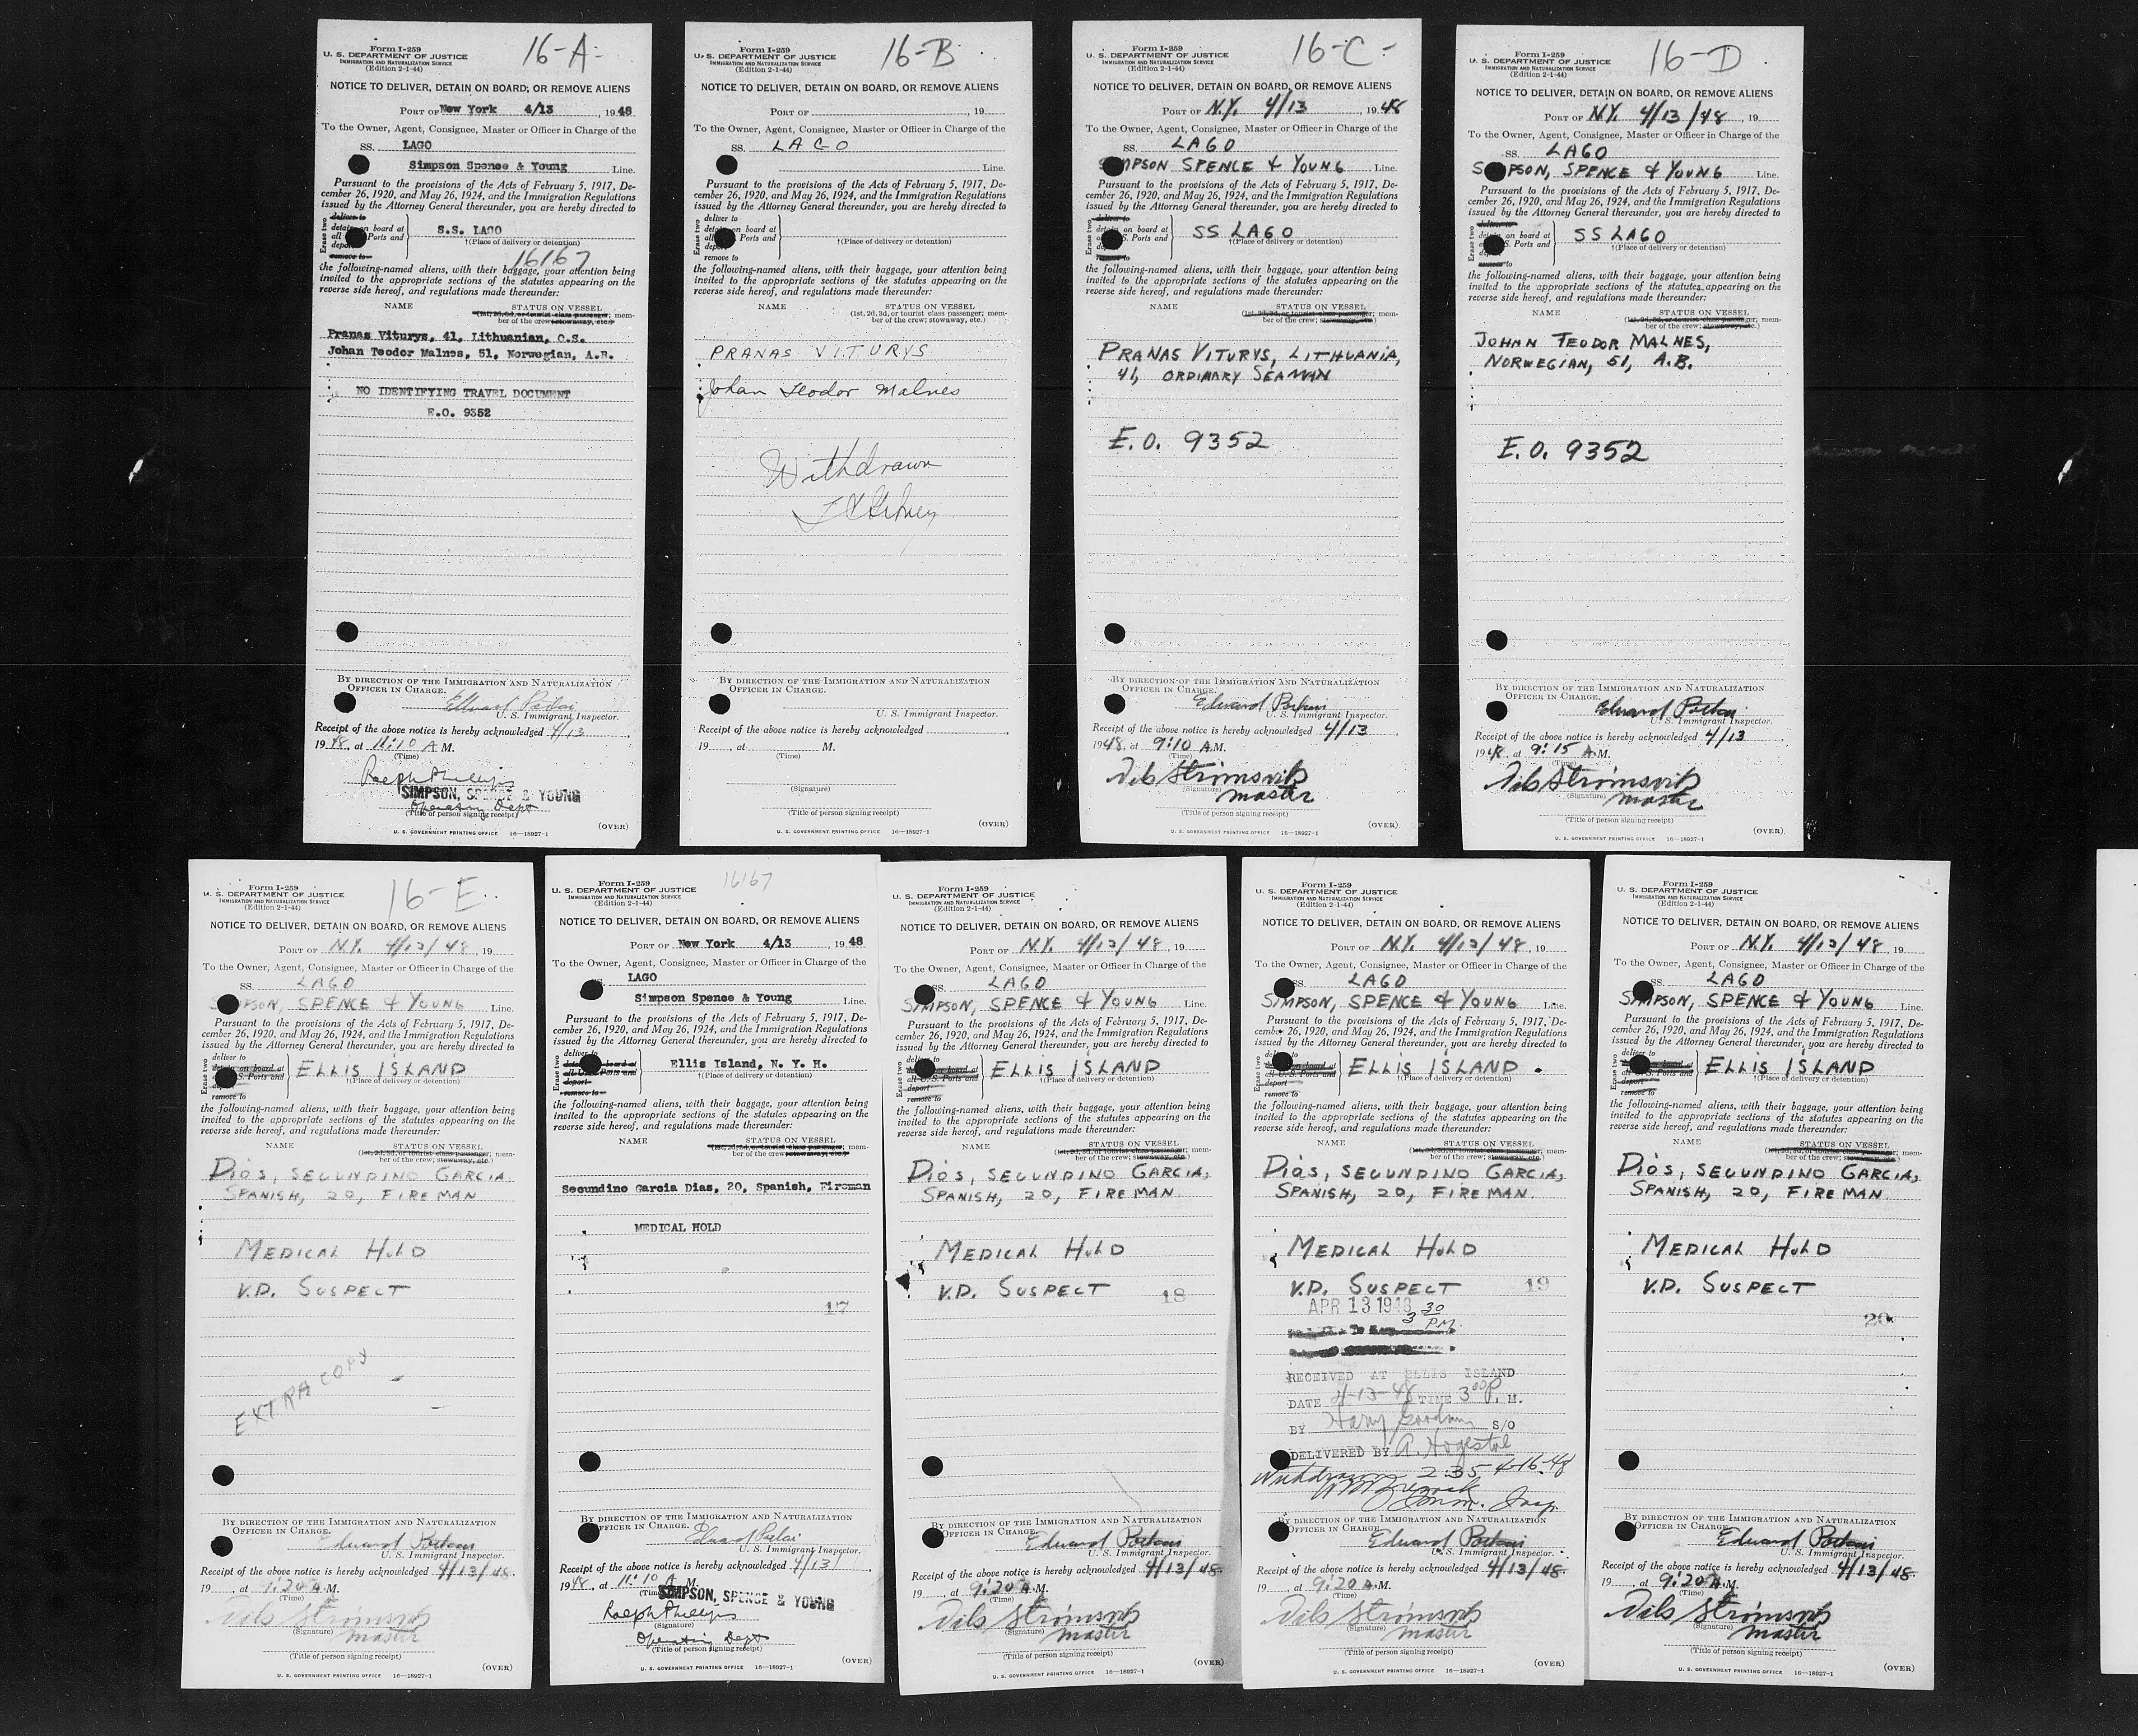 16-A-
Form I-259
U. S. DEPARTMENT OF JUSTICE
IMMIGRATION AND NATURALIZATION SERVICE
(Edition 2-1-44)
NOTICE TO DELIVER, DETAIN ON BOARD, OR REMOVE ALIENS
PORT OF New York 4/13, 1948
To the Owner, Agent, Consignee, Master or Officer in Charge of the
SS. LAGO
Simpson Spence & Young Line.
Pursuant to the provisions of the Acts of February 5, 1917, De-
cember 26, 1920, and May 26, 1924, and the Immigration Regulations
issued by the Attorney General thereunder, you are hereby directed to
Erase two
deliver to
detain on board at
all Ports and
deport
remove to
S.S. LAGO
†(Place of delivery or detention)
16167
the following-named aliens, with their baggage, your attention being
invited to the appropriate sections of the statutes appearing on the
reverse side hereof, and regulations made thereunder:
NAME STATUS ON VESSEL
(1st, 2d, 3d, or tourist class passenger; mem-
ber of the crew; stowaway, etc.)
Pranas Viturys, 41, Lithuanian, O.S.
Johan Teodor Malnes, 51, Norwegian, A.B.
NO IDENTIFYING TRAVEL DOCUMENT
E.O. 9352
BY DIRECTION OF THE IMMIGRATION AND NATURALIZATION
OFFICER IN CHARGE.
U. S. Immigrant Inspector.
Receipt of the above notice is hereby acknowledged 4/13,
1948, at 11:10 A M.
(Time)
Ralph Phillips
SIMPSON, SPENCE & YOUNG
Operating Dept
(Title of person signing receipt)
(OVER)
U. S. GOVERNMENT PRINTING OFFICE 16—18927-1
16-B
Form I-259
U. S. DEPARTMENT OF JUSTICE
IMMIGRATION AND NATURALIZATION SERVICE
(Edition 2-1-44)
NOTICE TO DELIVER, DETAIN ON BOARD, OR REMOVE ALIENS
PORT OF , 19
To the Owner, Agent, Consignee, Master or Officer in Charge of the
SS. LAGO
Line.
Pursuant to the provisions of the Acts of February 5, 1917, De-
cember 26, 1920, and May 26, 1924, and the Immigration Regulations
issued by the Attorney General thereunder, you are hereby directed to
Erase two
deliver to
detain on board at
all Ports and
deport
remove to
†(Place of delivery or detention)
the following-named aliens, with their baggage, your attention being
invited to the appropriate sections of the statutes appearing on the
reverse side hereof, and regulations made thereunder:
NAME STATUS ON VESSEL
(1st, 2d, 3d, or tourist class passenger; mem-
ber of the crew; stowaway, etc.)
PRANAS VITURYS
Johan Teodor Malnes
Withdrawn
BY DIRECTION OF THE IMMIGRATION AND NATURALIZATION
OFFICER IN CHARGE.
U. S. Immigrant Inspector.
Receipt of the above notice is hereby acknowledged ,
19 , at M.
(Time)
(Signature)
(Title of person signing receipt)
(OVER)
U. S. GOVERNMENT PRINTING OFFICE 16—18927-1
16-C-
Form I-259
U. S. DEPARTMENT OF JUSTICE
IMMIGRATION AND NATURALIZATION SERVICE
(Edition 2-1-44)
NOTICE TO DELIVER, DETAIN ON BOARD, OR REMOVE ALIENS
PORT OF N.Y. 4/13, 1948
To the Owner, Agent, Consignee, Master or Officer in Charge of the
SS. LAGO
SIMPSON SPENCE & YOUNG Line.
Pursuant to the provisions of the Acts of February 5, 1917, De-
cember 26, 1920, and May 26, 1924, and the Immigration Regulations
issued by the Attorney General thereunder, you are hereby directed to
Erase two
deliver to
detain on board at
all U. S. Ports and
deport
remove to
SS LAGO
†(Place of delivery or detention)
the following-named aliens, with their baggage, your attention being
invited to the appropriate sections of the statutes appearing on the
reverse side hereof, and regulations made thereunder:
NAME STATUS ON VESSEL
(1st, 2d, 3d, or tourist class passenger; mem-
ber of the crew; stowaway, etc.)
PRANAS VITURYS, LITHUANIA,
41, ORDINARY SEAMAN
E.O. 9352
BY DIRECTION OF THE IMMIGRATION AND NATURALIZATION
OFFICER IN CHARGE.
Edward
U. S. Immigrant Inspector.
Receipt of the above notice is hereby acknowledged 4/13,
1948, at 9:10 A.M.
(Time)
Nils Strømsvik
(Signature)
master
(Title of person signing receipt)
(OVER)
U. S. GOVERNMENT PRINTING OFFICE 16—18927-1
16-D
Form I-259
U. S. DEPARTMENT OF JUSTICE
IMMIGRATION AND NATURALIZATION SERVICE
(Edition 2-1-44)
NOTICE TO DELIVER, DETAIN ON BOARD, OR REMOVE ALIENS
PORT OF N.Y. 4/13/48, 19
To the Owner, Agent, Consignee, Master or Officer in Charge of the
SS. LAGO
SIMPSON, SPENCE & YOUNG Line.
Pursuant to the provisions of the Acts of February 5, 1917, De-
cember 26, 1920, and May 26, 1924, and the Immigration Regulations
issued by the Attorney General thereunder, you are hereby directed to
Erase two
deliver to
detain on board at
all U. S. Ports and
deport
remove to
SS LAGO
†(Place of delivery or detention)
the following-named aliens, with their baggage, your attention being
invited to the appropriate sections of the statutes appearing on the
reverse side hereof, and regulations made thereunder:
NAME STATUS ON VESSEL
(1st, 2d, 3d, or tourist class passenger; mem-
ber of the crew; stowaway, etc.)
JOHAN TEODOR MALNES,
NORWEGIAN, 51, A.B.
E.O. 9352
BY DIRECTION OF THE IMMIGRATION AND NATURALIZATION
OFFICER IN CHARGE.
Edward
U. S. Immigrant Inspector.
Receipt of the above notice is hereby acknowledged 4/13,
1948, at 9:15 A.M.
(Time)
Nils Strømsvik
(Signature)
master
(Title of person signing receipt)
(OVER)
U. S. GOVERNMENT PRINTING OFFICE 16—18927-1
16-E
Form I-259
U. S. DEPARTMENT OF JUSTICE
IMMIGRATION AND NATURALIZATION SERVICE
(Edition 2-1-44)
NOTICE TO DELIVER, DETAIN ON BOARD, OR REMOVE ALIENS
PORT OF N.Y. 4/13/48, 19
To the Owner, Agent, Consignee, Master or Officer in Charge of the
SS. LAGO
SIMPSON, SPENCE & YOUNG Line.
Pursuant to the provisions of the Acts of February 5, 1917, De-
cember 26, 1920, and May 26, 1924, and the Immigration Regulations
issued by the Attorney General thereunder, you are hereby directed to
Erase two
deliver to
detain on board at
all U. S. Ports and
deport
remove to
ELLIS ISLAND
†(Place of delivery or detention)
the following-named aliens, with their baggage, your attention being
invited to the appropriate sections of the statutes appearing on the
reverse side hereof, and regulations made thereunder:
NAME STATUS ON VESSEL
(1st, 2d, 3d, or tourist class passenger; mem-
ber of the crew; stowaway, etc.)
DIOS, SECUNDINO GARCIA,
SPANISH, 20, FIREMAN
MEDICAL HOLD
V.D. SUSPECT
EXTRA COPY
BY DIRECTION OF THE IMMIGRATION AND NATURALIZATION
OFFICER IN CHARGE.
Edward
U. S. Immigrant Inspector.
Receipt of the above notice is hereby acknowledged 4/13/48.
19 , at 9:20 A.M.
(Time)
Nils Strømsvik
(Signature)
master
(Title of person signing receipt)
(OVER)
U. S. GOVERNMENT PRINTING OFFICE 16—18927-1
16167
Form I-259
U. S. DEPARTMENT OF JUSTICE
IMMIGRATION AND NATURALIZATION SERVICE
(Edition 2-1-44)
NOTICE TO DELIVER, DETAIN ON BOARD, OR REMOVE ALIENS
PORT OF New York 4/13, 1948
To the Owner, Agent, Consignee, Master or Officer in Charge of the
LAGO
Simpson Spence & Young Line.
Pursuant to the provisions of the Acts of February 5, 1917, De-
cember 26, 1920, and May 26, 1924, and the Immigration Regulations
issued by the Attorney General thereunder, you are hereby directed to
Erase two
deliver to
detain on board at
all U. S. Ports and
deport
remove to
Ellis Island, N. Y. H.
†(Place of delivery or detention)
the following-named aliens, with their baggage, your attention being
invited to the appropriate sections of the statutes appearing on the
reverse side hereof, and regulations made thereunder:
NAME STATUS ON VESSEL
(1st, 2d, 3d, or tourist class passenger; mem-
ber of the crew; stowaway, etc.)
Secundino Garcia Dias, 20, Spanish, Fireman
MEDICAL HOLD
17
BY DIRECTION OF THE IMMIGRATION AND NATURALIZATION
OFFICER IN CHARGE.
Edward
U. S. Immigrant Inspector.
Receipt of the above notice is hereby acknowledged 4/13,
1948, at 11:10 A M.
(Time)
SIMPSON, SPENCE & YOUNG
Ralph Phillips
(Signature)
Operating Dept
(Title of person signing receipt)
(OVER)
U. S. GOVERNMENT PRINTING OFFICE 16—18927-1
Form I-259
U. S. DEPARTMENT OF JUSTICE
IMMIGRATION AND NATURALIZATION SERVICE
(Edition 2-1-44)
NOTICE TO DELIVER, DETAIN ON BOARD, OR REMOVE ALIENS
PORT OF N.Y. 4/13/48, 19
To the Owner, Agent, Consignee, Master or Officer in Charge of the
SS. LAGO
SIMPSON, SPENCE & YOUNG Line.
Pursuant to the provisions of the Acts of February 5, 1917, De-
cember 26, 1920, and May 26, 1924, and the Immigration Regulations
issued by the Attorney General thereunder, you are hereby directed to
Erase two
deliver to
detain on board at
all U. S. Ports and
deport
remove to
ELLIS ISLAND
†(Place of delivery or detention)
the following-named aliens, with their baggage, your attention being
invited to the appropriate sections of the statutes appearing on the
reverse side hereof, and regulations made thereunder:
NAME STATUS ON VESSEL
(1st, 2d, 3d, or tourist class passenger; mem-
ber of the crew; stowaway, etc.)
DIOS, SECUNDINO GARCIA,
SPANISH, 20, FIREMAN
MEDICAL HOLD
V.D. SUSPECT
18
BY DIRECTION OF THE IMMIGRATION AND NATURALIZATION
OFFICER IN CHARGE.
Edward
U. S. Immigrant Inspector.
Receipt of the above notice is hereby acknowledged 4/13/48.
19 , at 9:20 A.M.
(Time)
Nils Strømsvik
(Signature)
master
(Title of person signing receipt)
(OVER)
U. S. GOVERNMENT PRINTING OFFICE 16—18927-1
Form I-259
U. S. DEPARTMENT OF JUSTICE
IMMIGRATION AND NATURALIZATION SERVICE
(Edition 2-1-44)
NOTICE TO DELIVER, DETAIN ON BOARD, OR REMOVE ALIENS
PORT OF N.Y. 4/13/48, 19
To the Owner, Agent, Consignee, Master or Officer in Charge of the
SS. LAGO
SIMPSON, SPENCE & YOUNG Line.
Pursuant to the provisions of the Acts of February 5, 1917, De-
cember 26, 1920, and May 26, 1924, and the Immigration Regulations
issued by the Attorney General thereunder, you are hereby directed to
Erase two
deliver to
detain on board at
all U. S. Ports and
deport
remove to
ELLIS ISLAND
†(Place of delivery or detention)
the following-named aliens, with their baggage, your attention being
invited to the appropriate sections of the statutes appearing on the
reverse side hereof, and regulations made thereunder:
NAME STATUS ON VESSEL
(1st, 2d, 3d, or tourist class passenger; mem-
ber of the crew; stowaway, etc.)
DIOS, SECUNDINO GARCIA,
SPANISH, 20, FIREMAN
MEDICAL HOLD
V.D. SUSPECT
19
APR 13 1948 3 30 PM.
RECEIVED AT ELLIS ISLAND
DATE 4-13-48 TIME 3 00 P. M.
BY Harry Goodman S/O
DELIVERED BY A. Hogestol
Withdrawn 2:35 4-16-48
Imm. Insp.
BY DIRECTION OF THE IMMIGRATION AND NATURALIZATION
OFFICER IN CHARGE.
Edward
U. S. Immigrant Inspector.
Receipt of the above notice is hereby acknowledged 4/13/48.
19 , at 9:20 A.M.
(Time)
Nils Strømsvik
(Signature)
master
(Title of person signing receipt)
(OVER)
U. S. GOVERNMENT PRINTING OFFICE 16—18927-1
Form I-259
U. S. DEPARTMENT OF JUSTICE
IMMIGRATION AND NATURALIZATION SERVICE
(Edition 2-1-44)
NOTICE TO DELIVER, DETAIN ON BOARD, OR REMOVE ALIENS
PORT OF N.Y. 4/13/48, 19
To the Owner, Agent, Consignee, Master or Officer in Charge of the
SS. LAGO
SIMPSON, SPENCE & YOUNG Line.
Pursuant to the provisions of the Acts of February 5, 1917, De-
cember 26, 1920, and May 26, 1924, and the Immigration Regulations
issued by the Attorney General thereunder, you are hereby directed to
Erase two
deliver to
detain on board at
all U. S. Ports and
deport
remove to
ELLIS ISLAND
†(Place of delivery or detention)
the following-named aliens, with their baggage, your attention being
invited to the appropriate sections of the statutes appearing on the
reverse side hereof, and regulations made thereunder:
NAME STATUS ON VESSEL
(1st, 2d, 3d, or tourist class passenger; mem-
ber of the crew; stowaway, etc.)
DIOS, SECUNDINO GARCIA,
SPANISH, 20, FIREMAN
MEDICAL HOLD
V.D. SUSPECT
20
BY DIRECTION OF THE IMMIGRATION AND NATURALIZATION
OFFICER IN CHARGE.
Edward
U. S. Immigrant Inspector.
Receipt of the above notice is hereby acknowledged 4/13/48.
19 , at 9:20 A.M.
(Time)
Nils Strømsvik
(Signature)
master
(Title of person signing receipt)
(OVER)
U. S. GOVERNMENT PRINTING OFFICE 16—18927-1